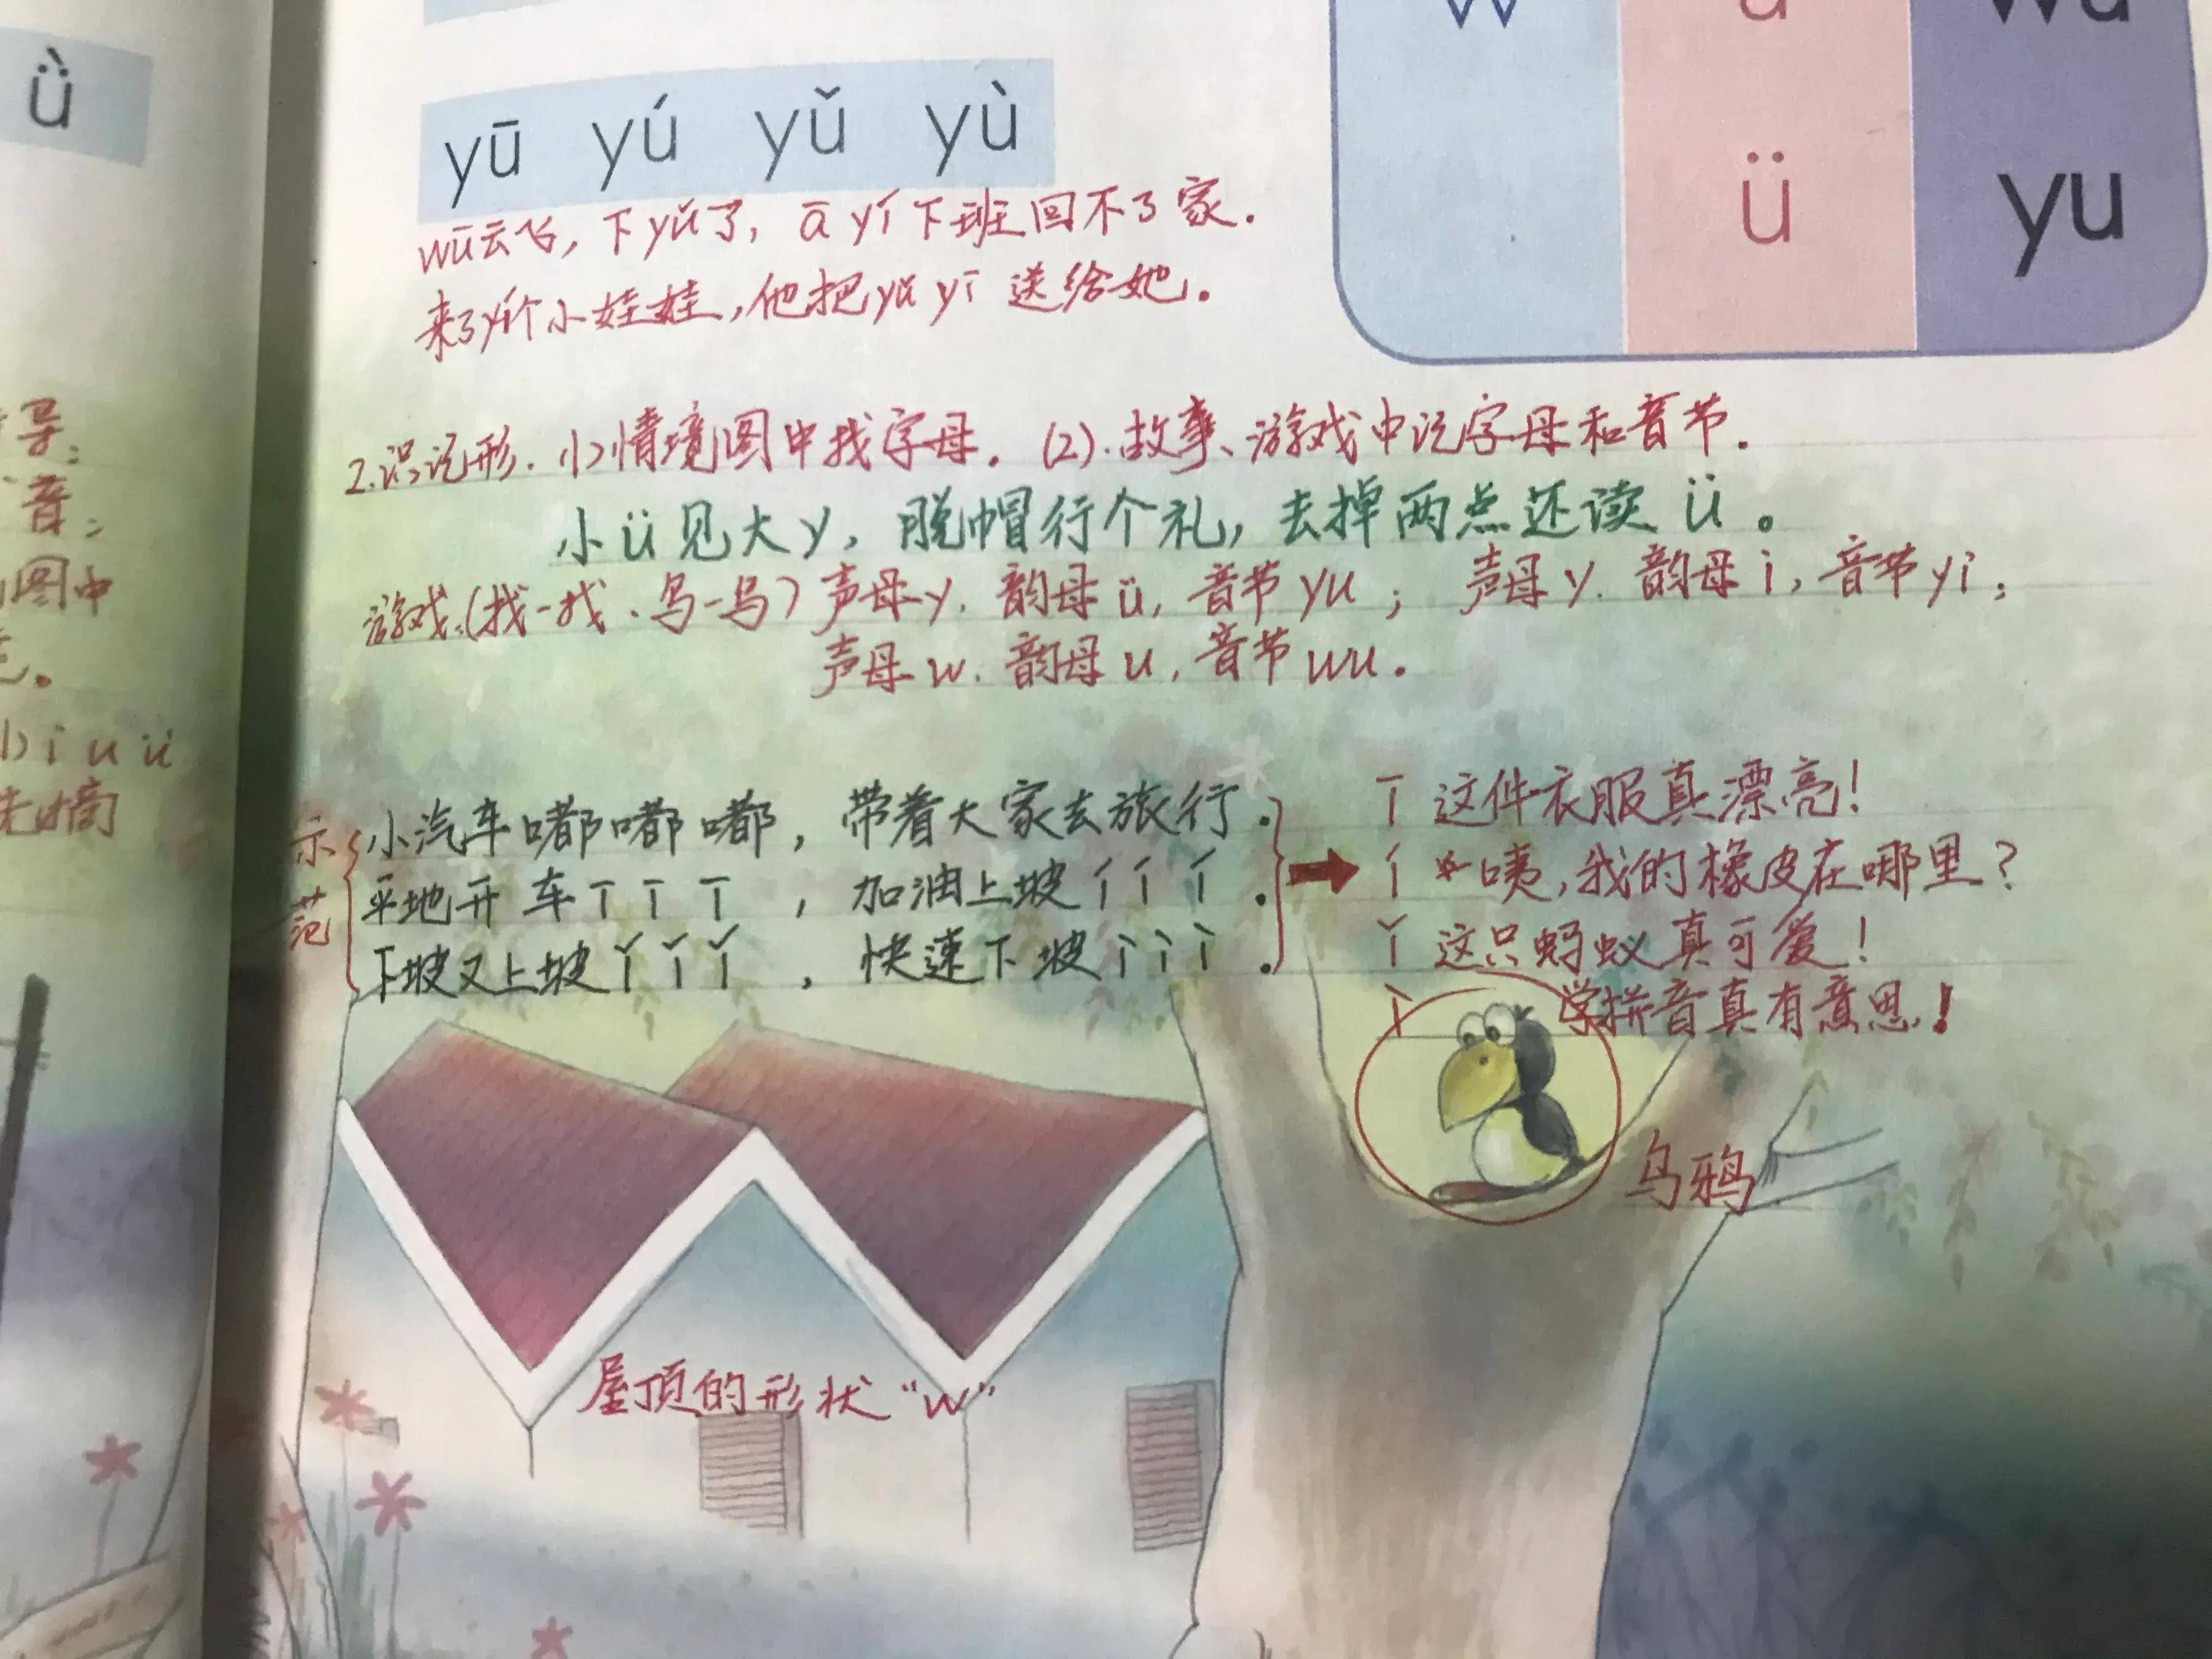 ǜ
w u wu
yū yú yǔ yù
ü yu
wū云飞，下yǔ了，ā yí下班回不了家.
来了yí个小娃娃，他把yǔ yī 送给她.
2.识记形. (1)情境图中找字母. (2).故事、游戏中记字母和音节.
小ü见大y，脱帽行个礼，去掉两点还读 ü。
游戏:(找一找、 ) 声母y. 韵母ü, 音节yu； 声母y. 韵母i, 音节yi；
声母w. 韵母u, 音节wu.
音；
图中
i u ü
先摘
示范
小汽车嘟嘟嘟，带着大家去旅行.
平地开车 ī ī ī ，加油上坡 í í í .
下坡又上坡 ǐ ǐ ǐ ，快速下坡 ì ì ì .
ī 这件衣服真漂亮！
í 咦,我的橡皮在哪里？
ǐ 这只蚂蚁真可爱！
ì 学拼音真有意思！
乌鸦
屋顶的形状“w”